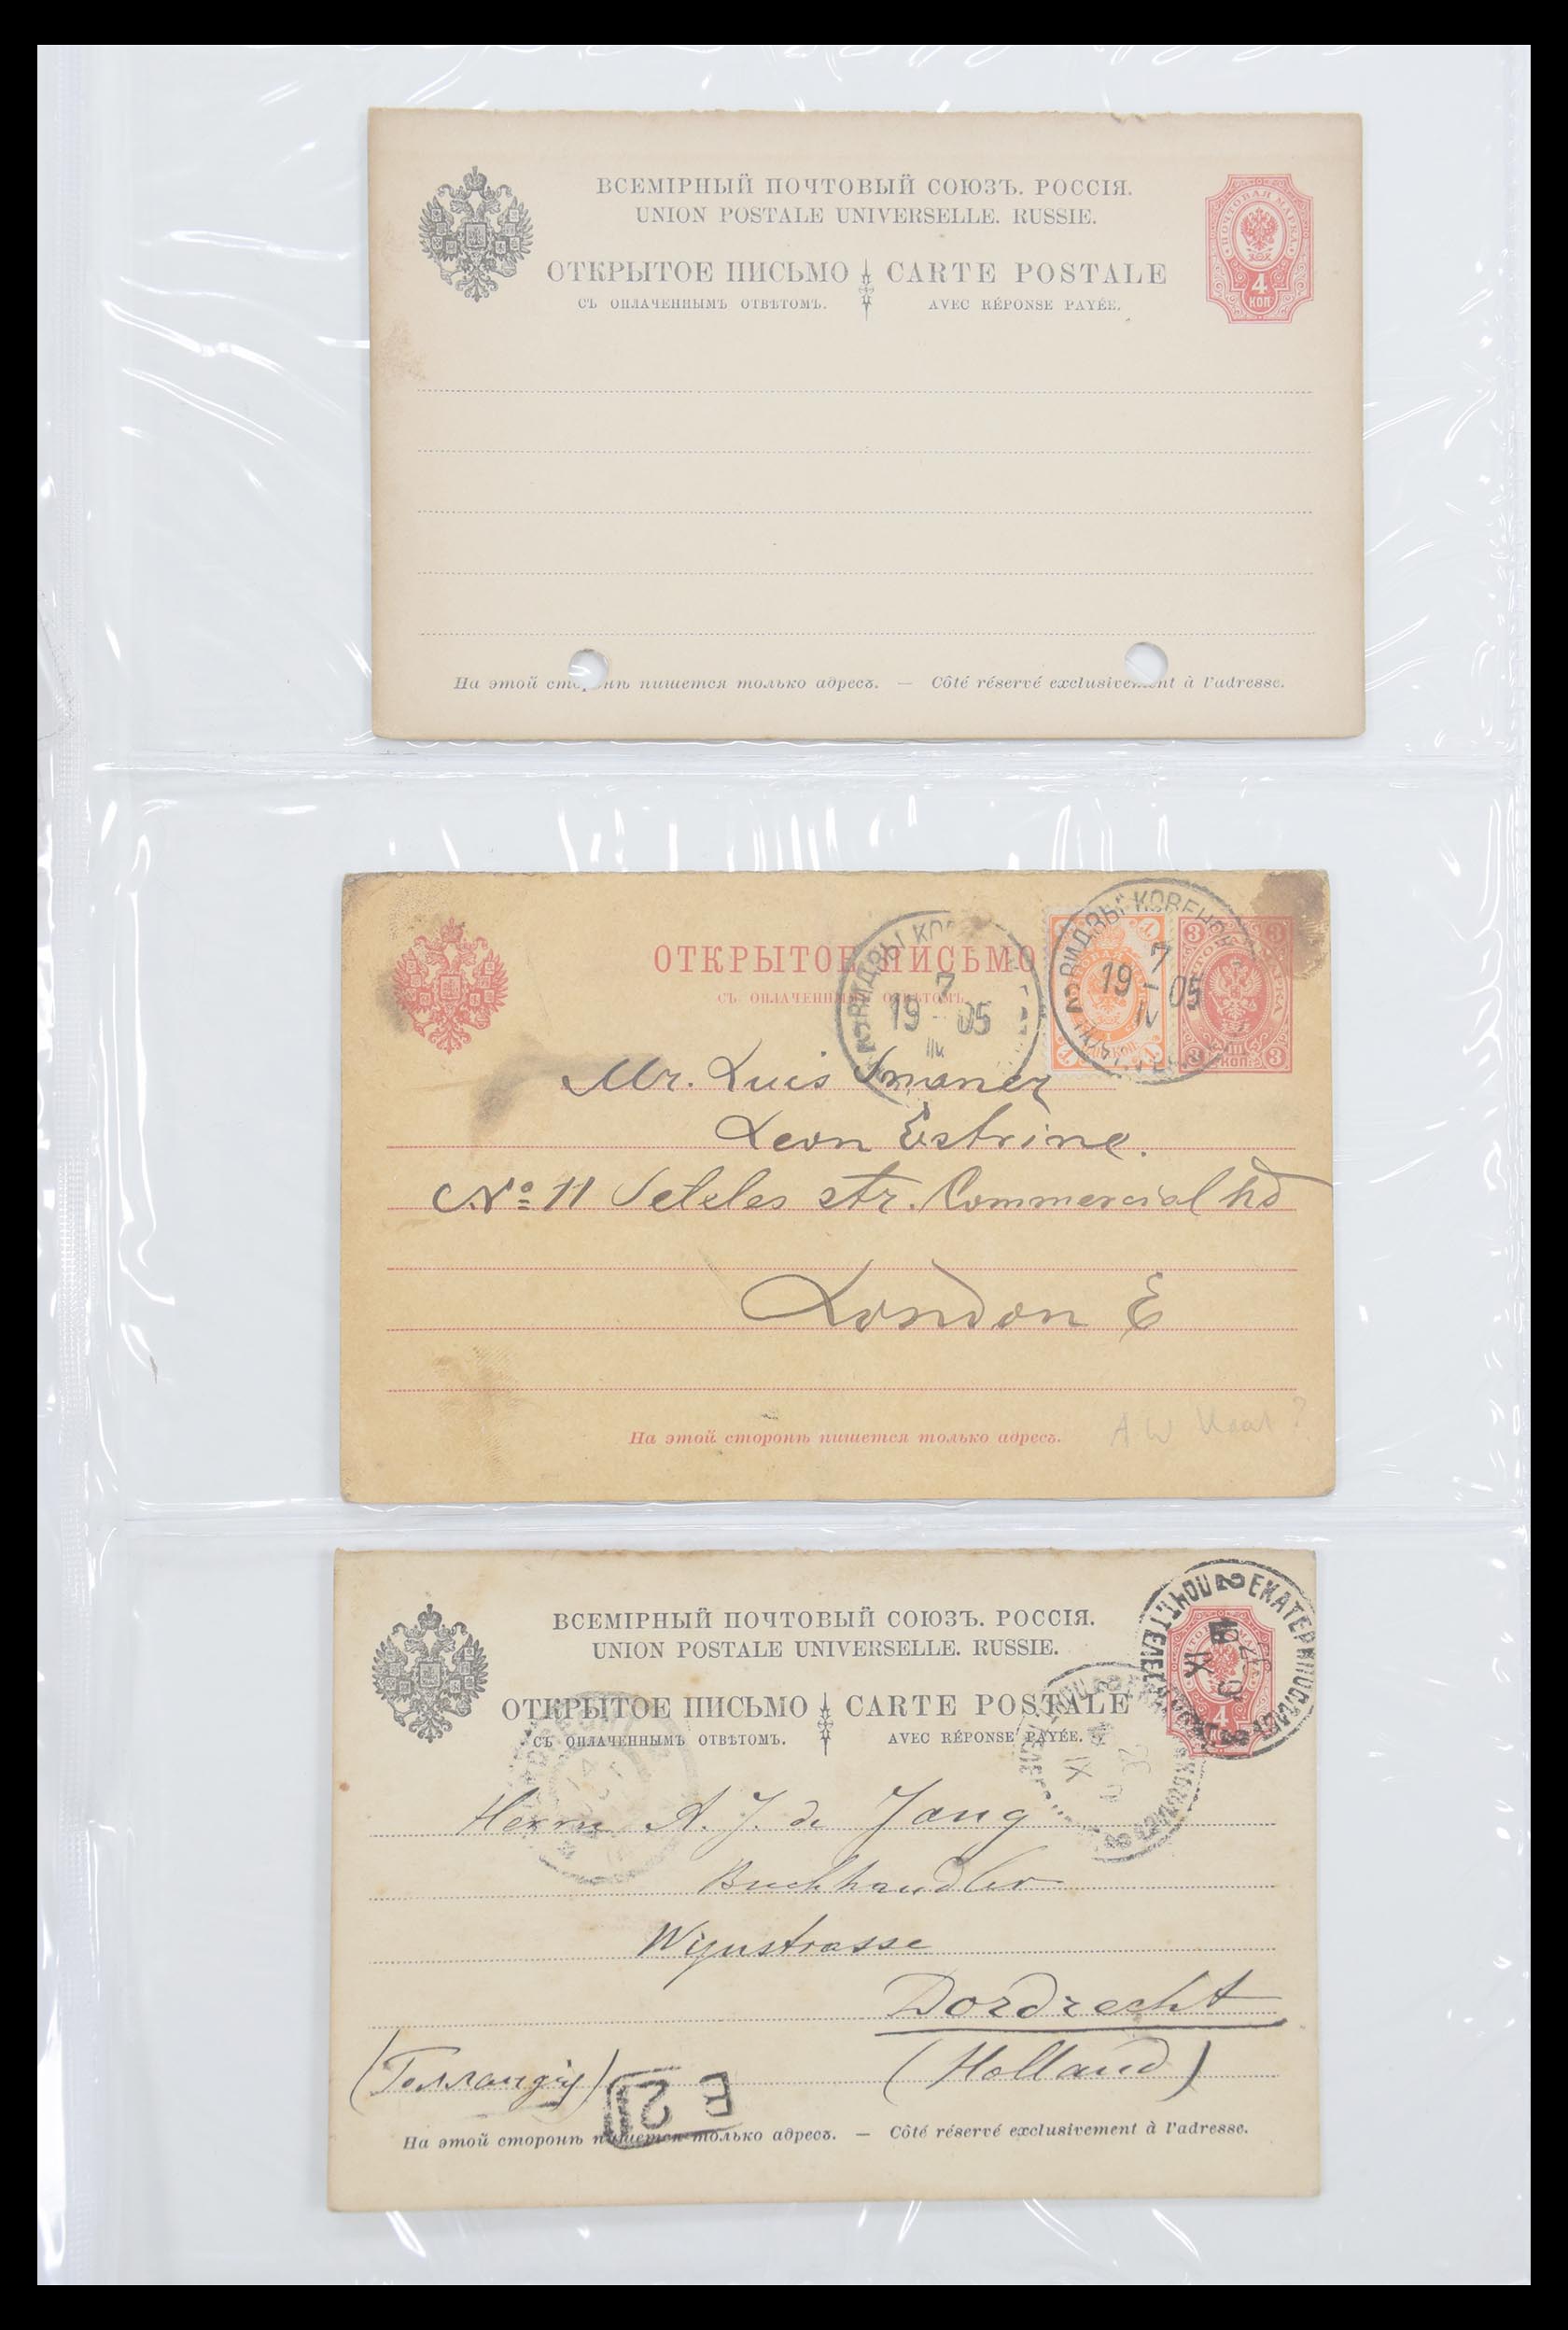 ВСЕМІРНЫЙ ПОЧТОВЫЙ СОЮЗЪ. РОССІЯ.
UNION POSTALE UNIVERSELLE. RUSSIE.
ОТКРЫТОЕ ПИСЬМО CARTE POSTALE
СЪ ОПЛАЧЕННЫМЪ ОТВѢТОМЪ. AVEC RÉPONSE PAYÉE.
ПОЧТОВАЯ МАРКА
4
КОП
На этой сторонѣ пишется только адресъ. — Côté réservé exclusivement à l'adresse.
ОТКРЫТОЕ ПИСЬМО
СЪ ОПЛАЧЕННЫМЪ ОТВѢТОМЪ.
ВИДЗЫ КОВЕНСК
7
19 - 05
IV
ВИДЗЫ КО
7
19 - 05
3 3
МАРКА
3 КОП. 3
Mr. Luis
Leon Estrine.
No 11 str. Commercial Rd
London E
На этой сторонѣ пишется только адресъ.
A W
ВСЕМІРНЫЙ ПОЧТОВЫЙ СОЮЗЪ. РОССІЯ.
UNION POSTALE UNIVERSELLE. RUSSIE.
ОТКРЫТОЕ ПИСЬМО CARTE POSTALE
СЪ ОПЛАЧЕННЫМЪ ОТВѢТОМЪ. AVEC RÉPONSE PAYÉE.
ЕКАТЕРИНОСЛАВЪ
ПОЧТ. ТЕЛЕГР.
XI
4
КОП
Herrn A. J. de Jong
Buchhandler
Wijnstrasse
Dordrecht
(Голландія) (Holland)
E 2
На этой сторонѣ пишется только адресъ. — Côté réservé exclusivement à l'adresse.